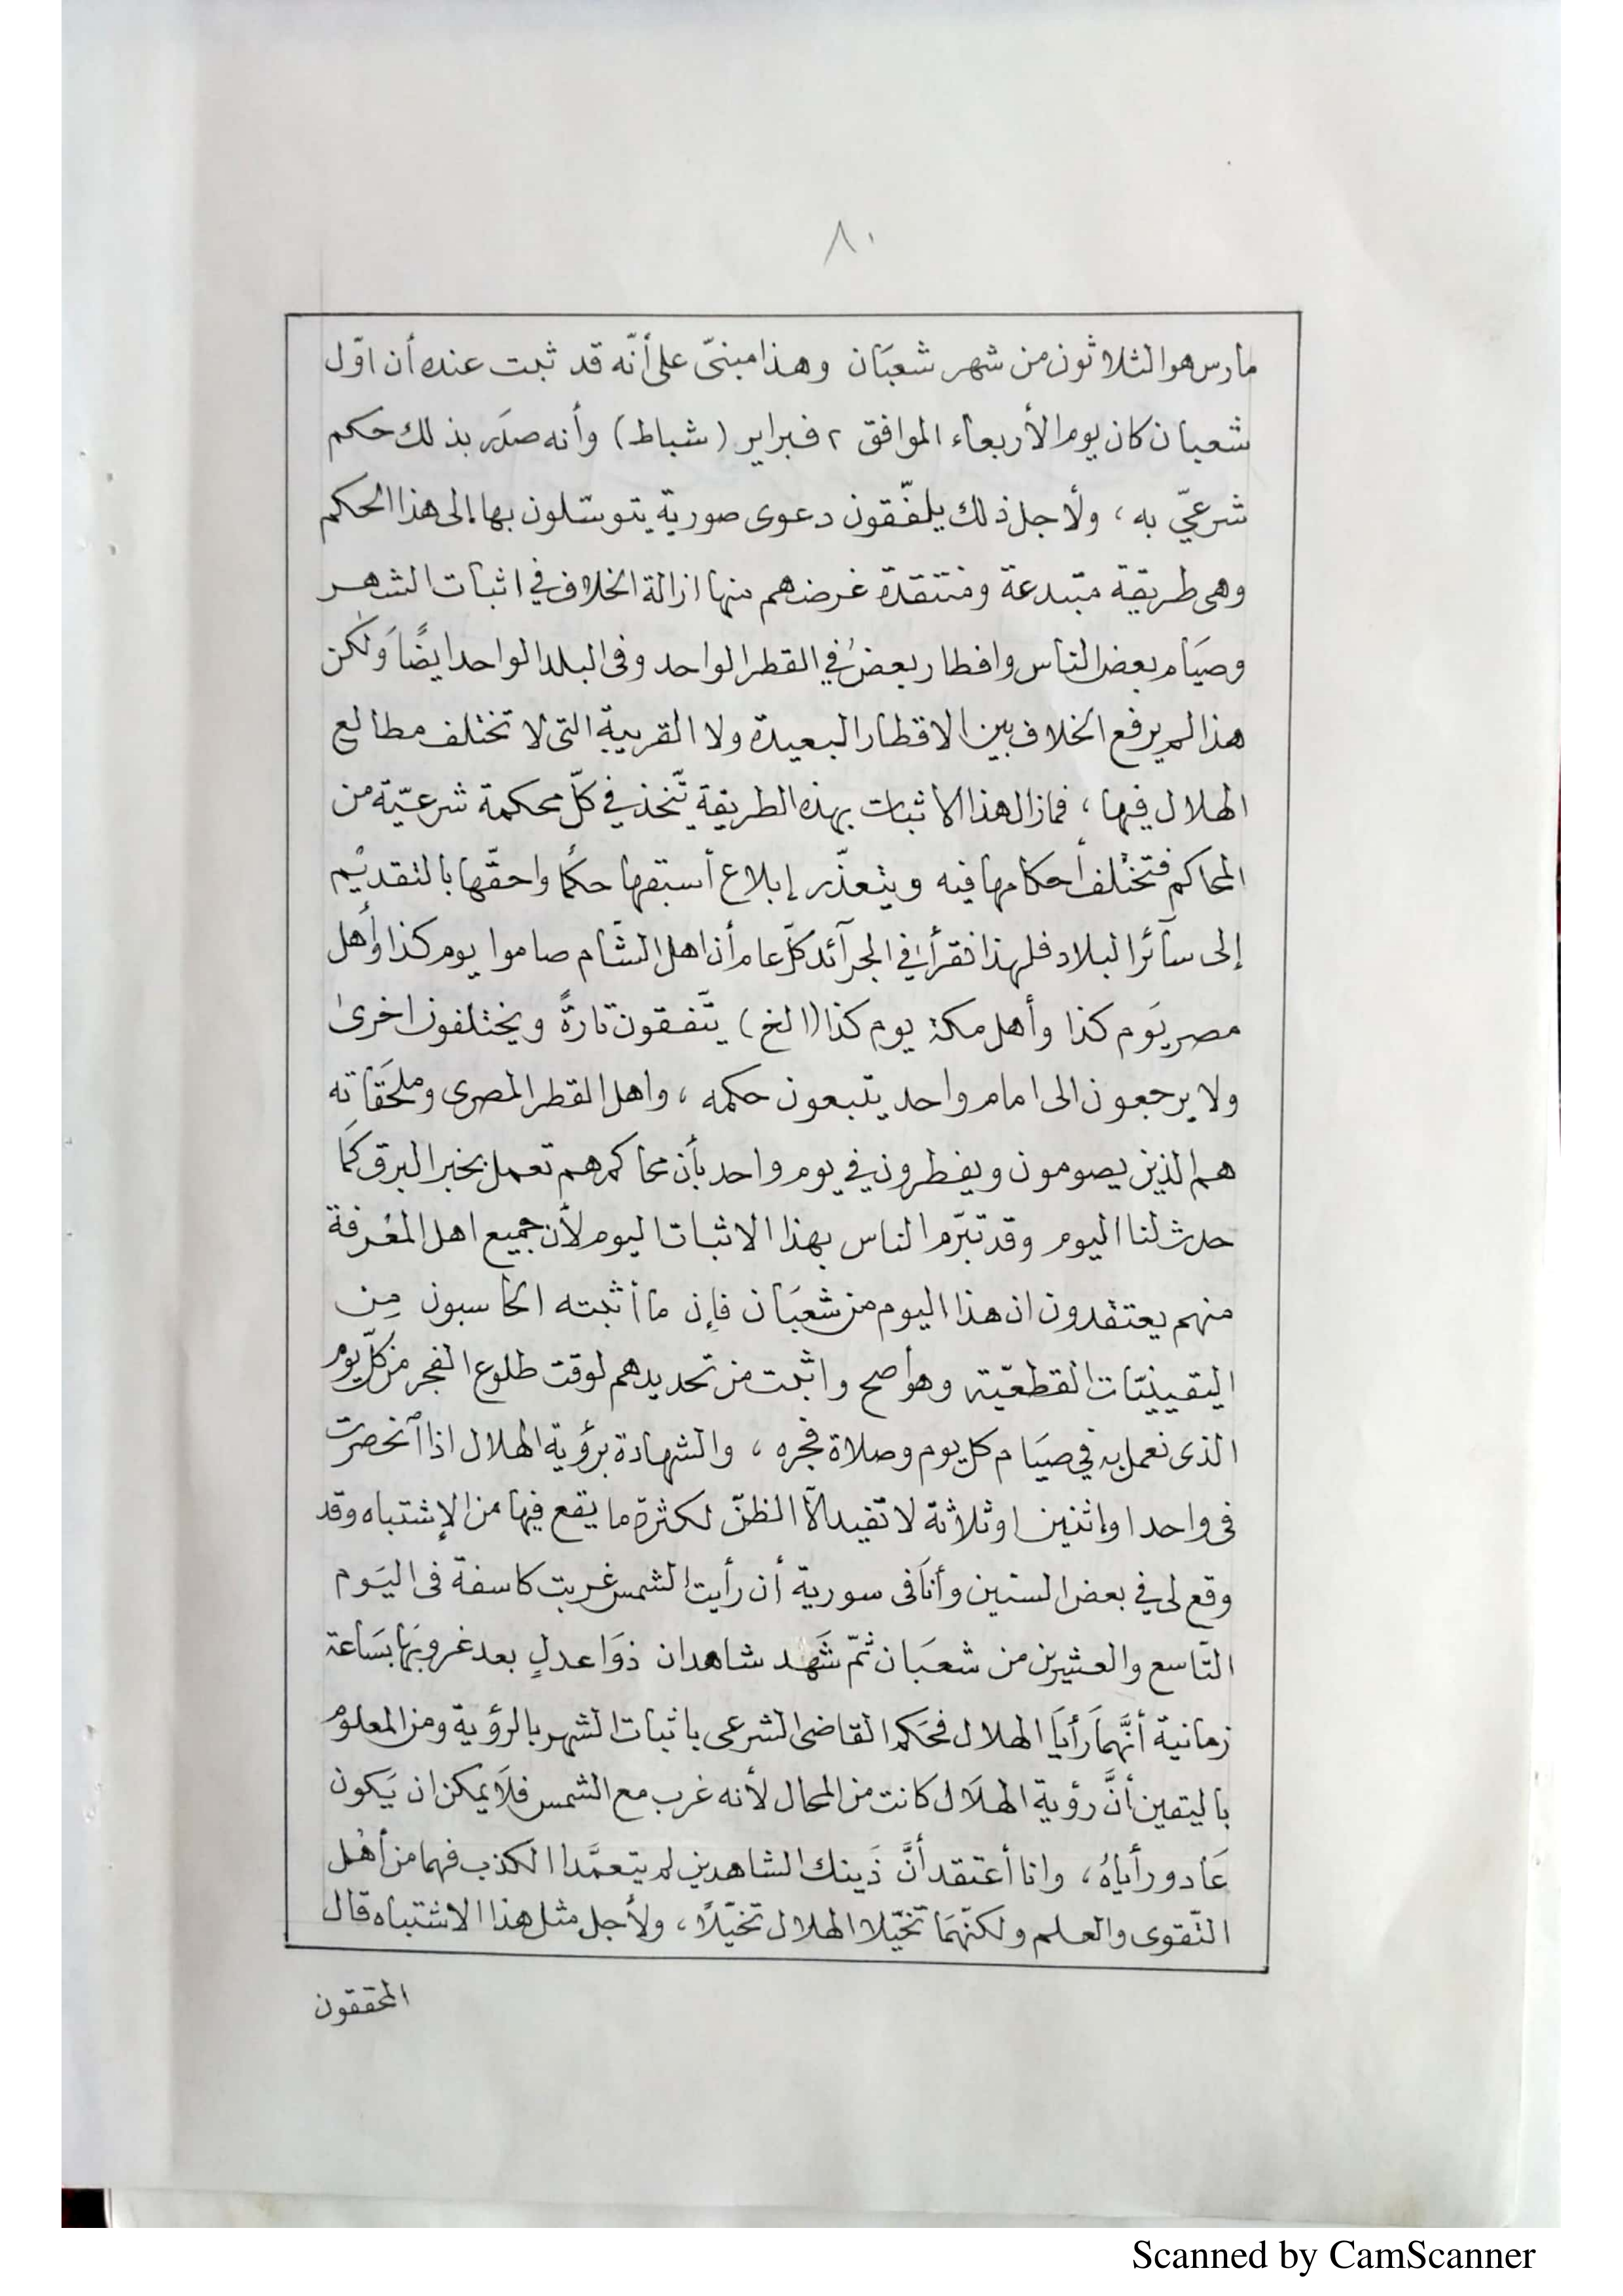 ٨٠
مارس هو الثلاثون من شهر شعبَان وهذا مبنىّ على أنّه قد ثبت عنده أن اوّل
شعبان كان يوم الأربعاء الموافق ٢ فبراير (شباط) وأنه صدَر بذلك حكم
شرعيّ به ، ولأجل ذلك يلفّقون دعوى صورية يتوسّلون بها إلى هذا الحكم
وهى طريقة مبتدعة ومنتقدة غرضهم منها ازالة الخلاف في اثبات الشهر
وصيَام بعض الناس وافطار بعضٌ في القطر الواحد وفى البلد الواحد ايضًا وَلٰكن
هذا لم يرفع الخلاف بين الاقطار البعيدة ولا القريبة التى لا تختلف مطالع
الهلال فيها ، فمازال هذا الاثبات بهذه الطريقة تّتخذ في كلّ محكمة شرعيّة من
المحاكم فتختْلف أحكامها فيه ويتعذّر إبلاغ أسبقها حكمًا واحقّها بالتقديْم
إلى سآئر البلاد فلهذا نقرأ في الجرآئد كلّ عام أن اهل الشّام صاموا يوم كذا وأهل
مصر يَوم كذا وأهل مكة يوم كذا (الخ) يتّفقون تارةً ويختلفون اخرىٰ
ولا يرجعون الى امام واحد يتبعون حكمه ، واهل القطر المصرى وملحَقَاته
هم الذين يصومون ويفطرون في يوم واحد بأن محاكمهم تعمل بخبر البرق كمَا
حدث لنا اليوم وقد تبرّم الناس بهذا الاثبات اليوم لأن جميع اهل المعْرفة
منهم يعتقدون ان هذا اليوم من شعبَان فإن ما أثبته الحاسبون مِن
اليقينيّات القطعيّة وهو أصح واثبت من تحديدهم لوقت طلوع الفجر من كلّ يوم
الذى نعمل به في صيَام كل يوم وصلاة فجره ، والشهادة برؤية الهلال اذا انحصرت
فى واحد او إثنين او ثلاثة لا تفيد الّا الظنّ لكثرة ما يقع فيها من الإشتباه وقد
وقع لى في بعض السنين وأنَا فى سورية أن رأيت الشمس غربت كاسفة فى اليَوم
التّاسع والعشرين من شعبَان ثمّ شَهد شاهدان ذوَا عدلٍ بعد غروبَها بسَاعة
زمانية أنَّهمَا رَأيَا الهلال فحَكم القاضى الشرعى باثبات الشهر بالرؤية ومن المعلوم
باليقين أنَّ رؤية الهلَال كانت من المحال لأنه غرب مع الشمس فلَا يمكن ان يَكون
عَاد ورأياهُ ، وانا أعتقد أنَّ ذَينك الشاهدين لم يتعمَّدا الكذب فهما من أهْل
التّقوى والعلم ولكنّهمَا تخيّلا الهلال تخيّلاً ، ولأجل مثل هذا الاشتباه قال
المحققون
Scanned by CamScanner